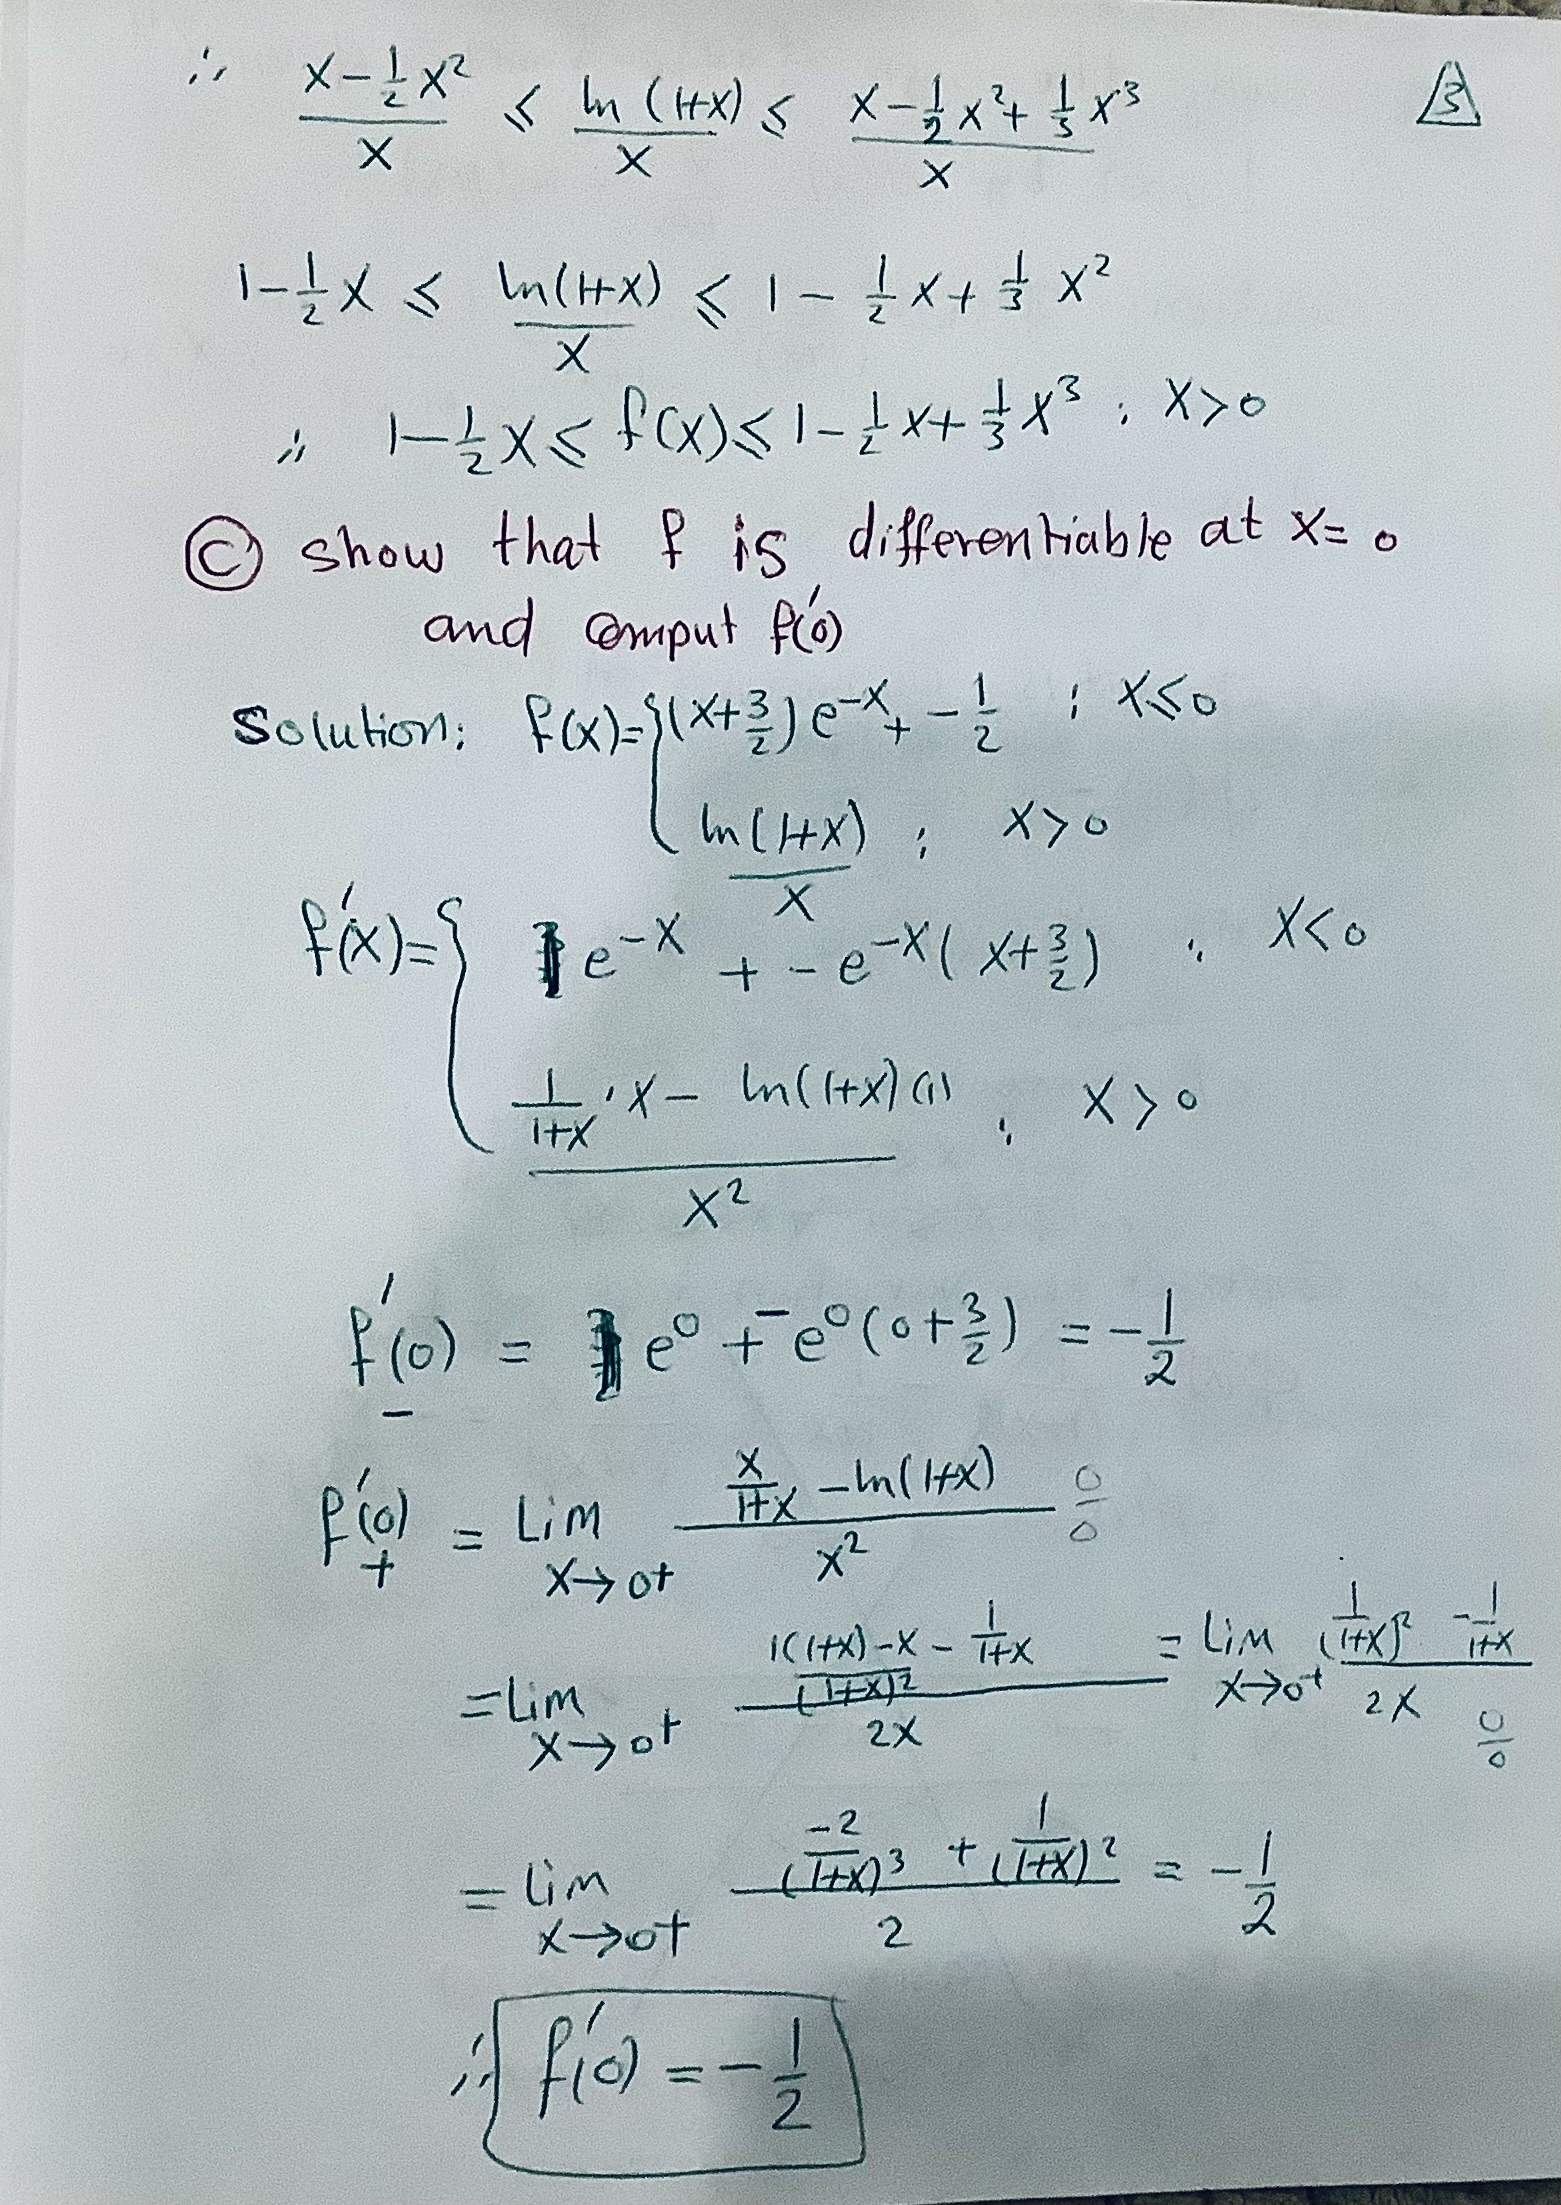 ∴ (x - 1/2 x²)/x ≤ ln(1+x)/x ≤ (x - 1/2 x² + 1/3 x³)/x
3
1 - 1/2 x ≤ ln(1+x)/x ≤ 1 - 1/2 x + 1/3 x²
∴ 1 - 1/2 x ≤ f(x) ≤ 1 - 1/2 x + 1/3 x³ ; x > 0
Ⓒ show that f is differentiable at x = 0
and comput f'(0)
Solution: f(x) = { (x + 3/2) e^-x + - 1/2 ; x ≤ 0
ln(1+x)/x ; x > 0
f'(x) = { e^-x + - e^-x (x + 3/2) ; x < 0
(1/(1+x) · x - ln(1+x)(1))/x² ; x > 0
f'_-(0) = e^0 + - e^0 (0 + 3/2) = - 1/2
f'_+(0) = Lim x→0+ (x/(1+x) - ln(1+x))/x² 0/0
= Lim x→0+ ((1(1+x) - x)/(1+x)² - 1/(1+x))/2x = Lim x→0+ (1/(1+x)² - 1/(1+x))/2x 0/0
= Lim x→0+ (-2/(1+x)³ + 1/(1+x)²)/2 = - 1/2
∴ f'(0) = - 1/2